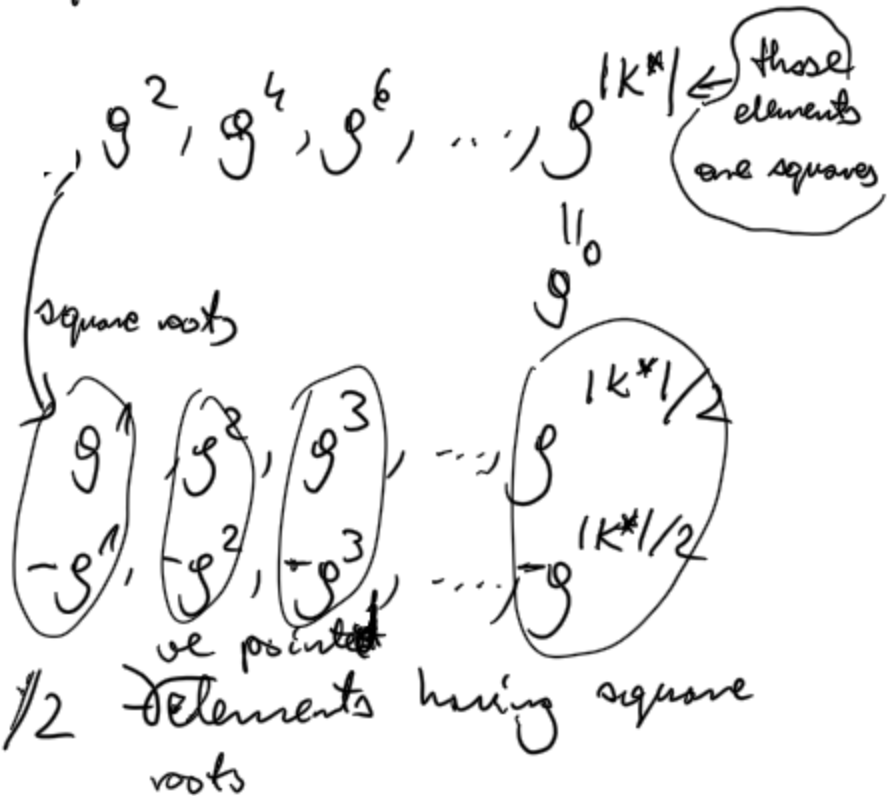 ..., g², g⁴, g⁶, ..., g^|K*| ← those
elements
are squares
||
g⁰
square roots
g¹, g², g³, ..., g^|K*|/2
-g¹, -g², -g³, ..., -g^|K*|/2
we pointed
/2 elements having square
roots